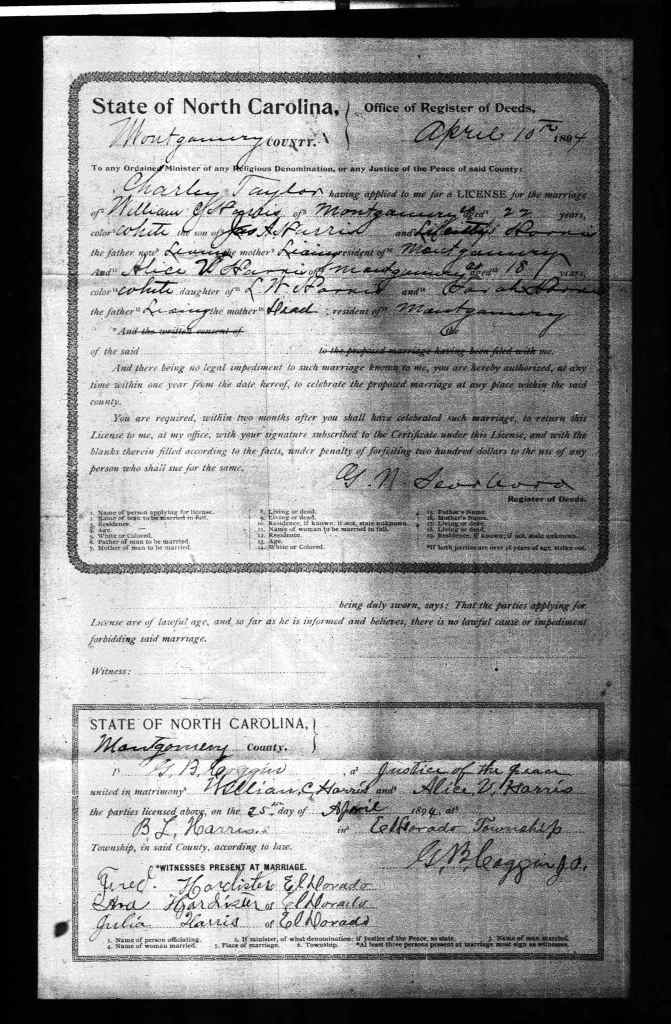 State of North Carolina, Office of Register of Deeds,
Montgomery COUNTY. April 10th 1894
To any Ordained Minister of any Religious Denomination, or any Justice of the Peace of said County:
Charley Taylor having applied to me for a LICENSE for the marriage
of William C Harris of Montgomery aged 22 years,
color white the son of A Harris and Harris
the father now Living the mother Living resident of Montgomery
And Alice V Harris of Montgomery aged 18 years,
color white daughter of L W Harris and Sarah Harris
the father Living the mother Dead; resident of Montgomery
*And the written consent of
of the said to the proposed marriage having been filed with me.
And there being no legal impediment to such marriage known to me, you are hereby authorized, at any
time within one year from the date hereof, to celebrate the proposed marriage at any place within the said
county.
You are required, within two months after you shall have celebrated such marriage, to return this
License to me, at my office, with your signature subscribed to the Certificate under this License, and with the
blanks therein filled according to the facts, under penalty of forfeiting two hundred dollars to the use of any
person who shall sue for the same.
G. N.
Register of Deeds.
1. Name of person applying for license. 8. Living or dead. 15. Father's Name.
2. Name of man to be married in full. 9. Living or dead. 16. Mother's Name.
3. Residence. 10. Residence, if known, if not, state unknown. 17. Living or dead.
4. Age. 11. Name of woman to be married in full. 18. Living or dead.
5. White or Colored. 12. Residence. 19. Residence, if known; if not, state unknown.
6. Father of man to be married 13. Age.
7. Mother of man to be married. 14. White or Colored. *If both parties are over 18 years of age, strike out.
being duly sworn, says: That the parties applying for
License are of lawful age, and so far as he is informed and believes, there is no lawful cause or impediment
forbidding said marriage.
Witness:
STATE OF NORTH CAROLINA,
Montgomery County.
I G. B. Coggin a Justice of the peace
united in matrimony William C. Harris and Alice V. Harris
the parties licensed above, on the 25th day of April 1894, at
B L Harris in ElDorado Township
Township, in said County, according to law.
G. B. Coggin J.P.
*WITNESSES PRESENT AT MARRIAGE.
Fred. Hardister ElDorado
Hardister of ElDorado
Julia Harris of ElDorado
1. Name of person officiating. 2. If minister, of what denomination; if Justice of the Peace, so state. 3. Name of man married.
4. Name of woman married. 5. Place of marriage. 6. Township. *At least three persons present at marriage must sign as witnesses.